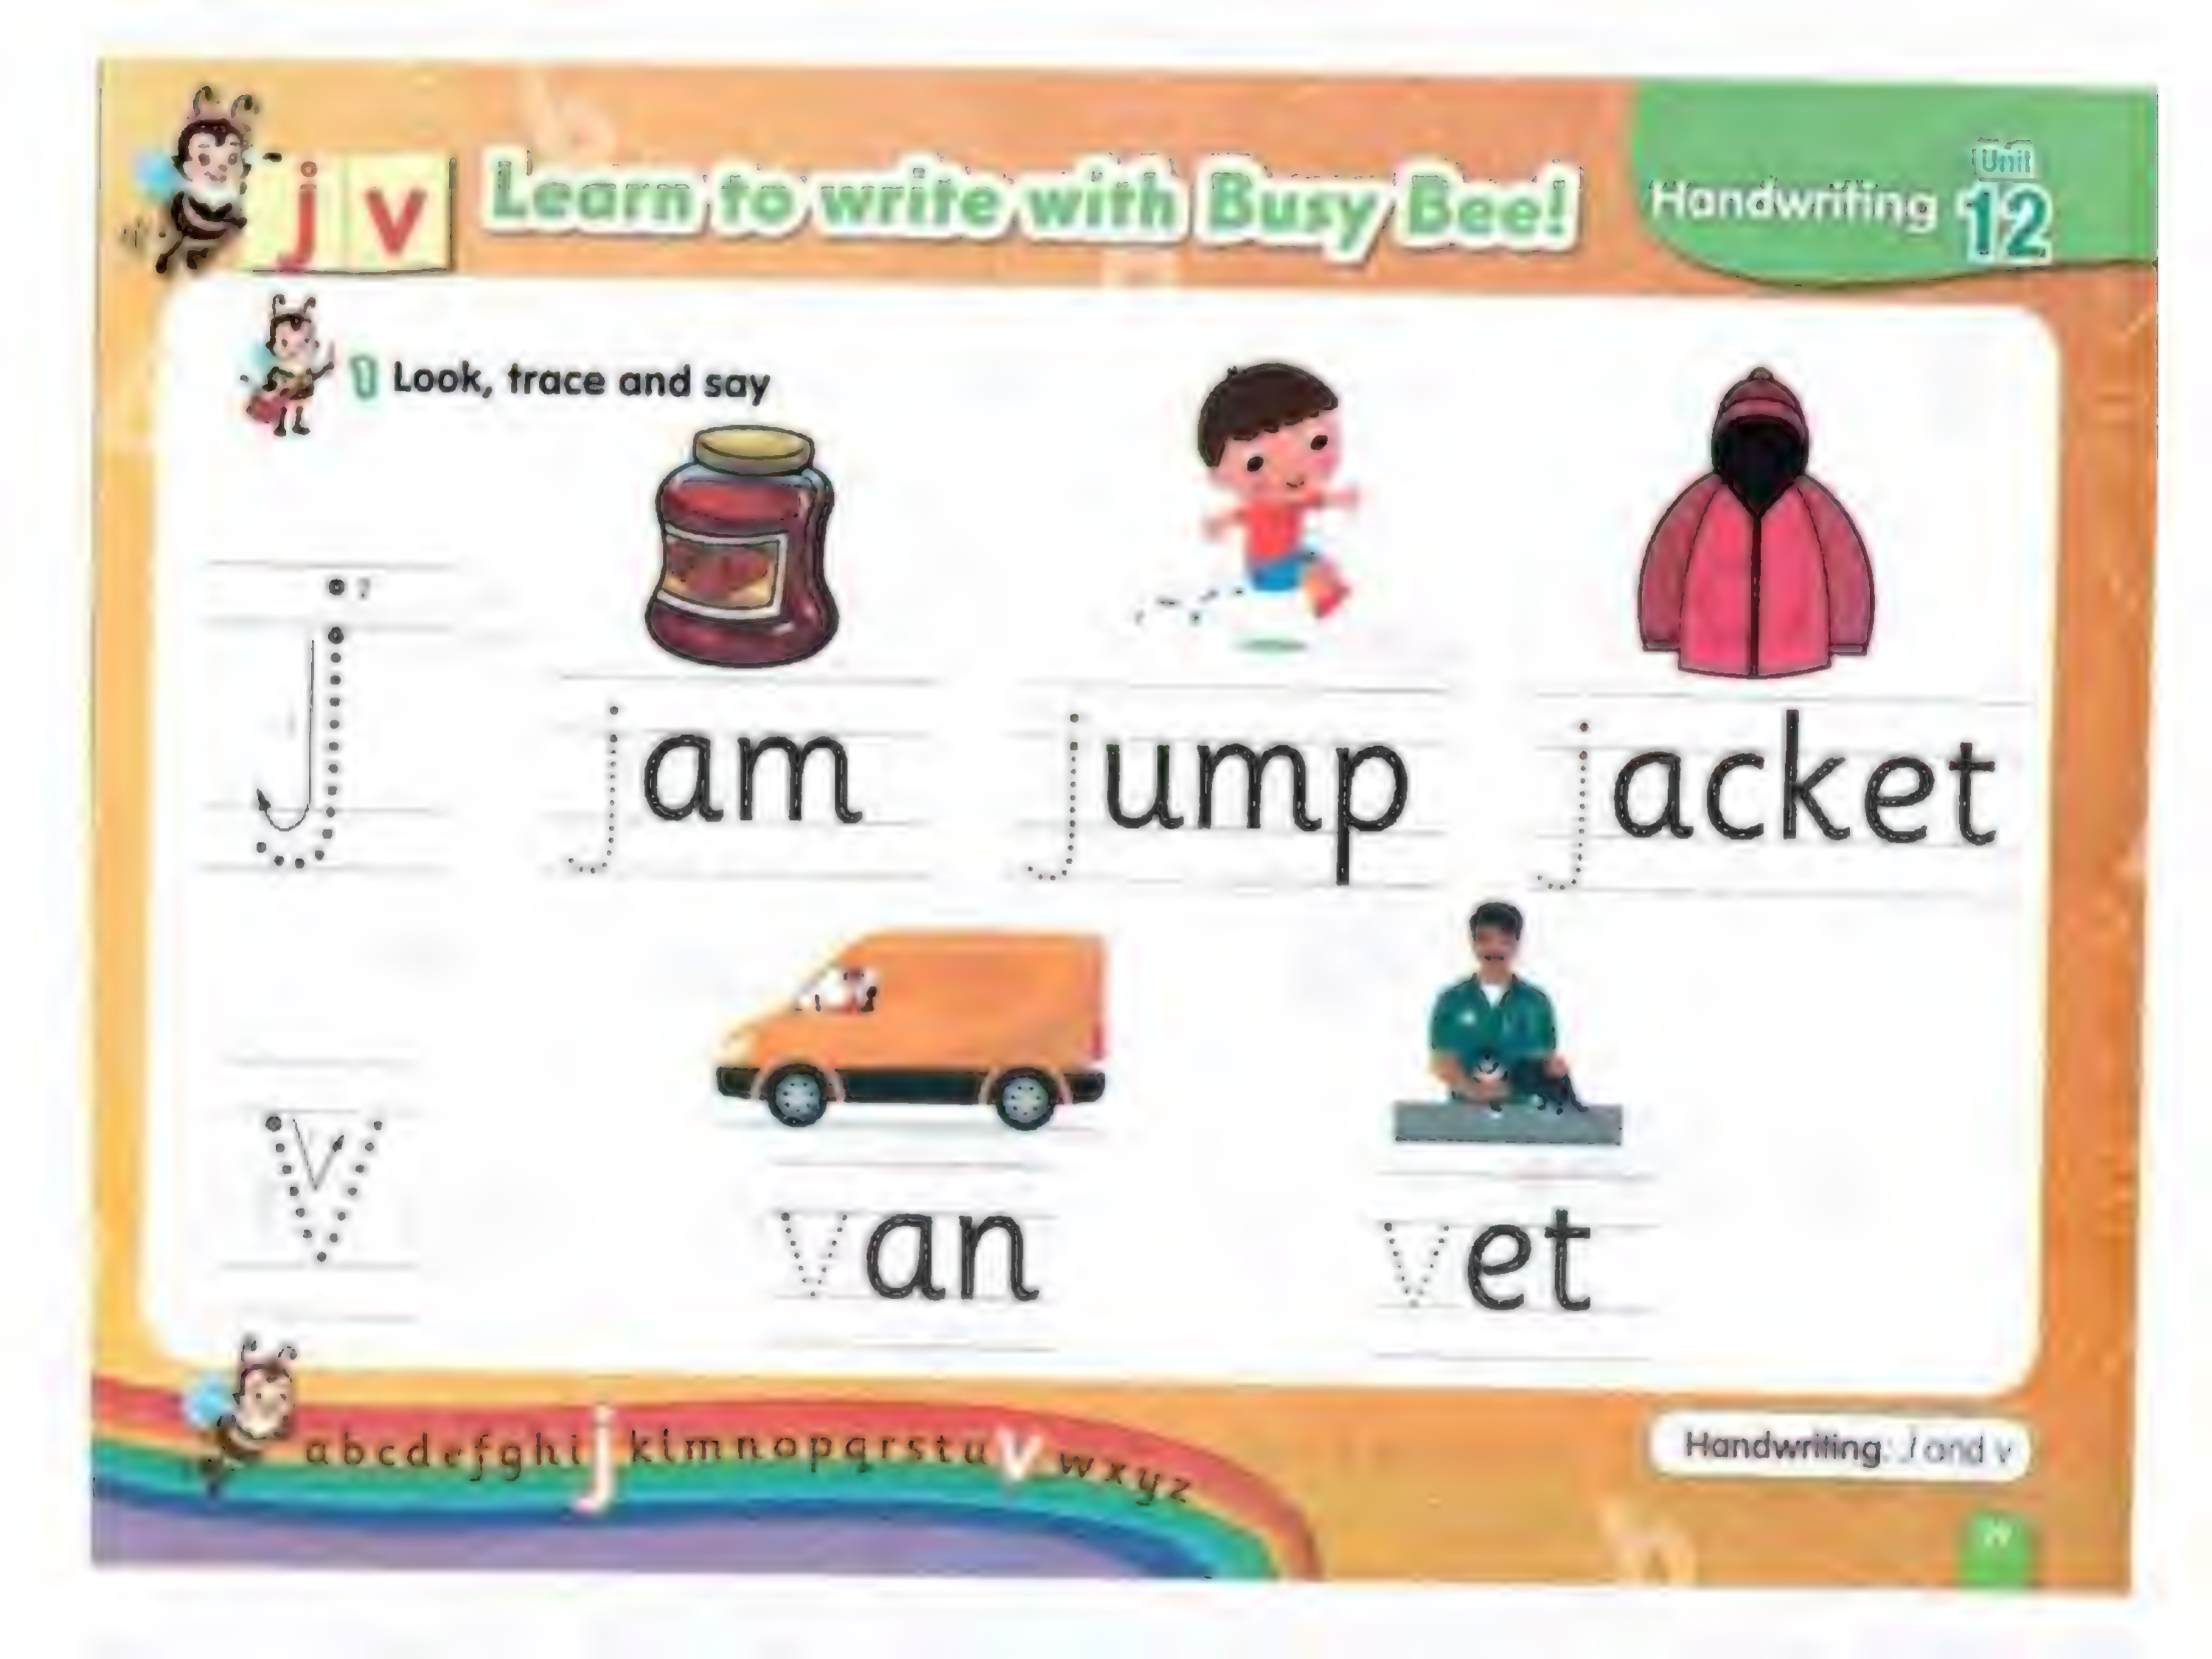 j v Learn to write with Busy Bee!
Handwriting Unit 12
1 Look, trace and say
j jam jump jacket
v van vet
a b c d e f g h i j k l m n o p q r s t u v w x y z
Handwriting: j and v